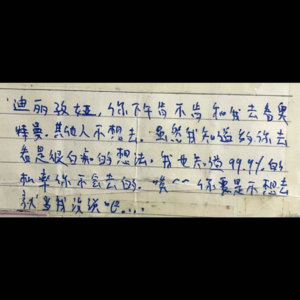 迪丽孜娅,你下午肯不肯和我去看奥
特曼,其他人不想去,虽然我知道约你去
看是很白痴的想法,我也知道99.9%的
机率你不会去的,唉~~你要是不想去
就当我没说吧...